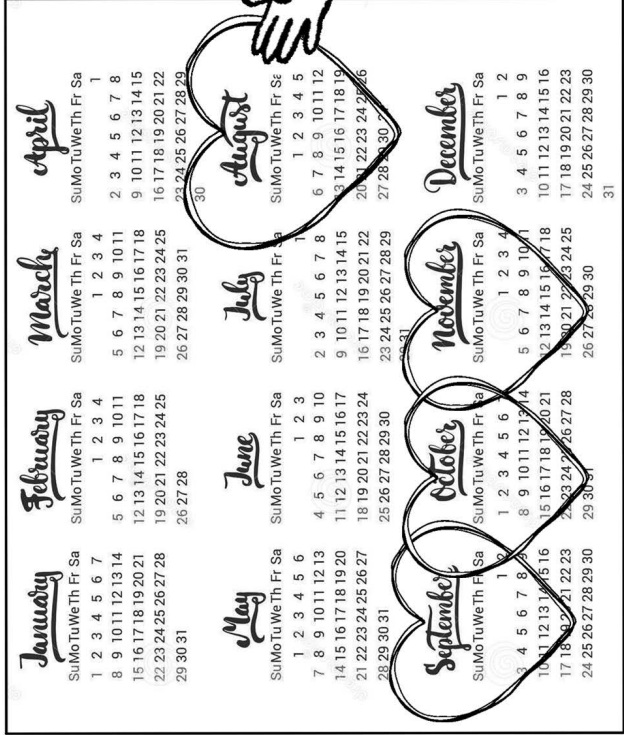 January
SuMoTuWeTh Fr Sa
1 2 3 4 5 6 7
8 9 10 11 12 13 14
15 16 17 18 19 20 21
22 23 24 25 26 27 28
29 30 31
February
SuMoTuWeTh Fr Sa
1 2 3 4
5 6 7 8 9 10 11
12 13 14 15 16 17 18
19 20 21 22 23 24 25
26 27 28
March
SuMoTuWeTh Fr Sa
1 2 3 4
5 6 7 8 9 10 11
12 13 14 15 16 17 18
19 20 21 22 23 24 25
26 27 28 29 30 31
April
SuMoTuWeTh Fr Sa
1
2 3 4 5 6 7 8
9 10 11 12 13 14 15
16 17 18 19 20 21 22
23 24 25 26 27 28 29
30
May
SuMoTuWeTh Fr Sa
1 2 3 4 5 6
7 8 9 10 11 12 13
14 15 16 17 18 19 20
21 22 23 24 25 26 27
28 29 30 31
June
SuMoTuWeTh Fr Sa
1 2 3
4 5 6 7 8 9 10
11 12 13 14 15 16 17
18 19 20 21 22 23 24
25 26 27 28 29 30
July
SuMoTuWeTh Fr Sa
1
2 3 4 5 6 7 8
9 10 11 12 13 14 15
16 17 18 19 20 21 22
23 24 25 26 27 28 29
30 31
August
SuMoTuWeTh Fr Sa
1 2 3 4 5
6 7 8 9 10 11 12
13 14 15 16 17 18 19
20 21 22 23 24 25 26
27 28 29 30 31
September
SuMoTuWeTh Fr Sa
1 2
3 4 5 6 7 8 9
10 11 12 13 14 15 16
17 18 19 20 21 22 23
24 25 26 27 28 29 30
October
SuMoTuWeTh Fr Sa
1 2 3 4 5 6 7
8 9 10 11 12 13 14
15 16 17 18 19 20 21
22 23 24 25 26 27 28
29 30 31
November
SuMoTuWeTh Fr Sa
1 2 3 4
5 6 7 8 9 10 11
12 13 14 15 16 17 18
19 20 21 22 23 24 25
26 27 28 29 30
December
SuMoTuWeTh Fr Sa
1 2
3 4 5 6 7 8 9
10 11 12 13 14 15 16
17 18 19 20 21 22 23
24 25 26 27 28 29 30
31